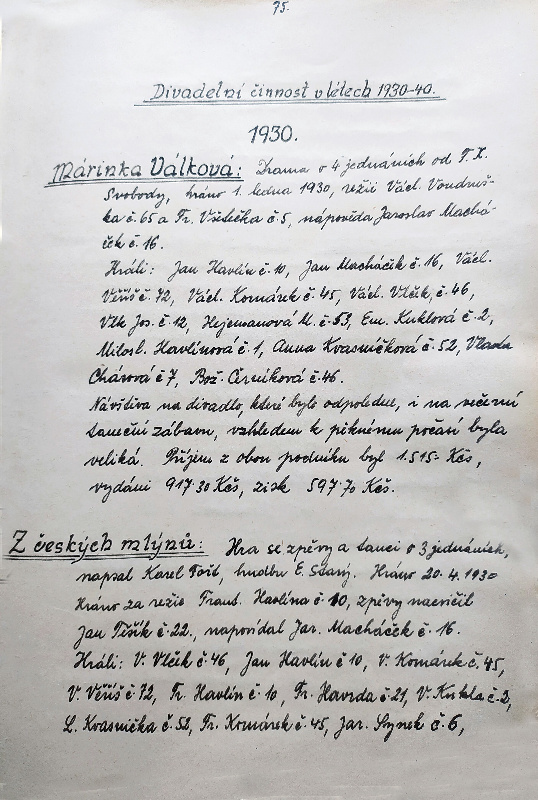 75.
Divadelní činnost v létech 1930-40.
1930.
Márinka Válková: Drama o 4 jednáních od F. X.
Svobody, hráno 1. ledna 1930, režii Václ. Voudruš-
ka č. 65 a Fr. Všetečka č. 5, nápověda Jaroslav Machá-
ček č. 16.
Hráli: Jan Havlín č. 10, Jan Macháček č. 16, Václ.
Věříš č. 72, Václ. Komárek č. 45, Václ. Vlček, č. 46,
Vlk Jos. č. 12, Hejemanová M. č. 53, Em. Kuklová č. 2,
Milosl. Havlínová č. 1, Anna Kvasničková č. 52, Vlasta
Chárová č 7, Bož. Černíková č. 46.
Návštěva na divadlo, které bylo odpoledne, i na večerní
taneční zábavu, vzhledem k pěknému počasí byla
veliká. Příjem z obou podniků byl 1.515- Kčs,
vydání 917·30 Kčs, zisk 597·70 Kčs.
Z českých mlýnů: Hra se zpěvy a tanci o 3 jednáních,
napsal Karel Fořt, hudbu E. Starý. Hráno 20. 4. 1930
Hráno za režie Frant. Havlína č. 10, zpěvy nacvičil
Jan Těšík č. 22., napovídal Jar. Macháček č. 16.
Hráli: V. Vlček č. 46, Jan Havlín č 10, V. Komárek č. 45,
V. Věříš č. 72, Fr. Havlín č. 10, Fr. Havrda č. 21, V. Kukla č. 2,
L. Kvasnička č. 52, Fr. Komárek č. 45, Jar. Synek č. 6,